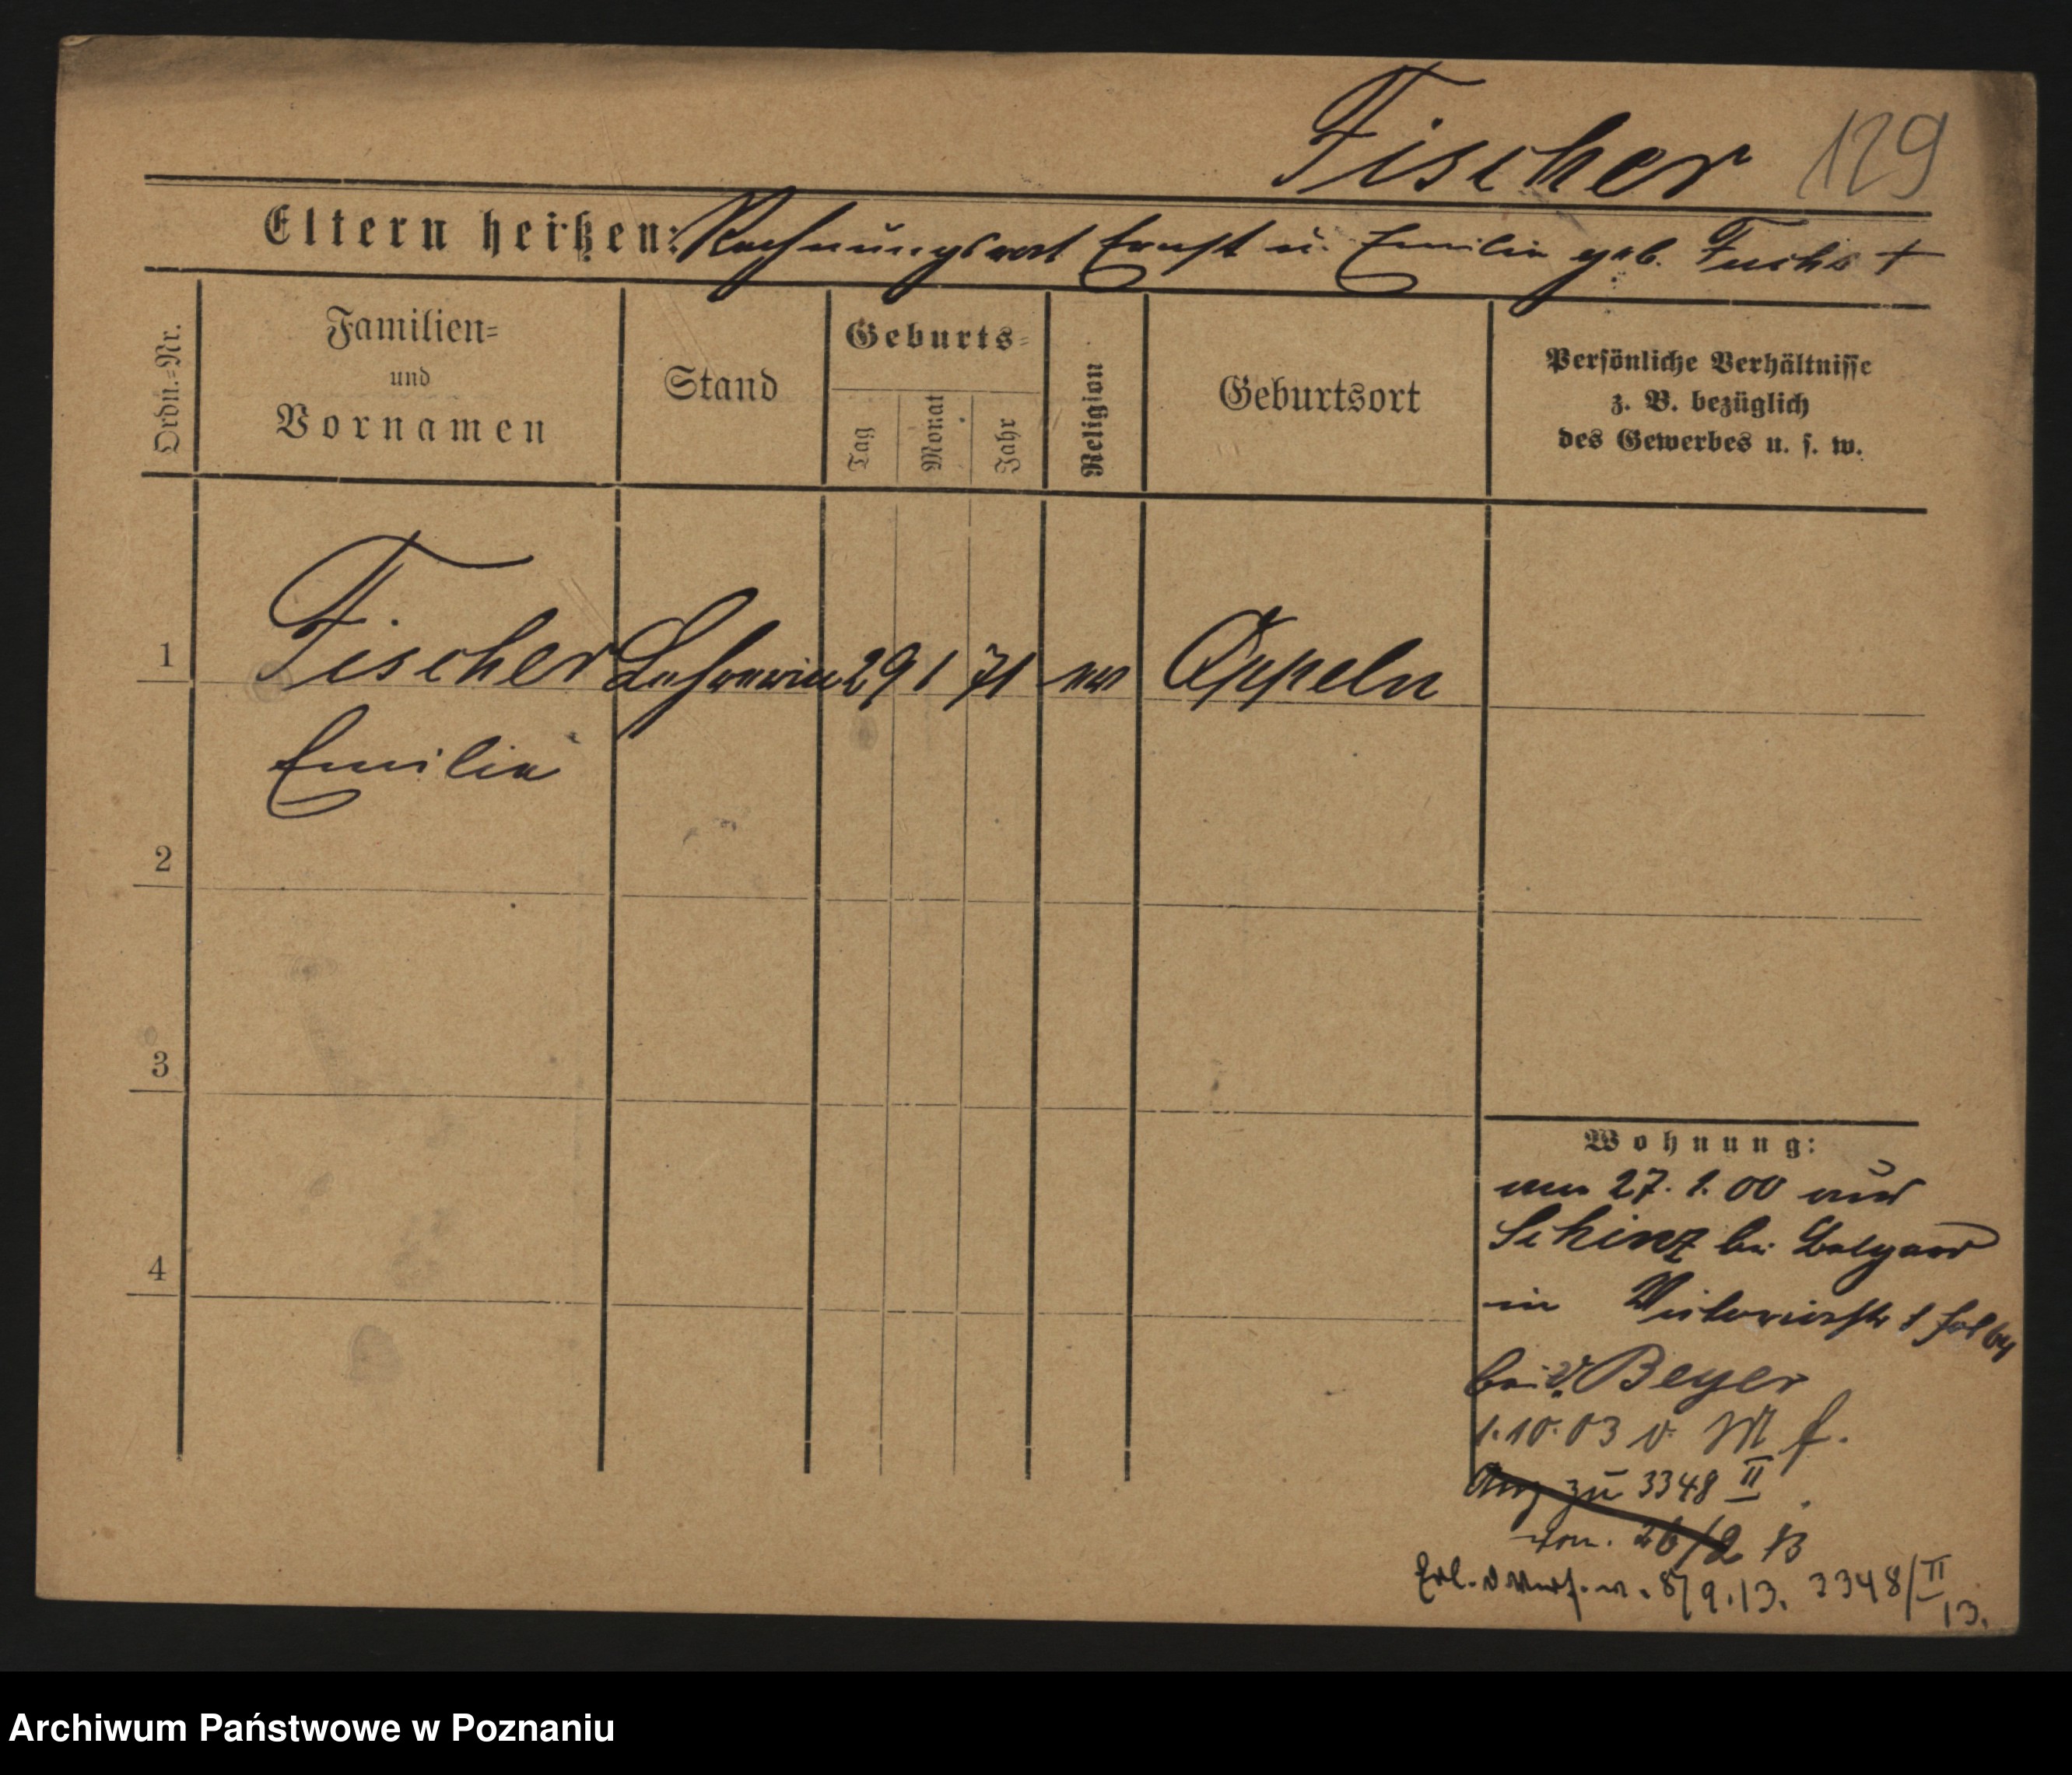 Fischer 129
Eltern heißen: Rechnungsrat Ernst u. Emilie geb. Fuchs +
Ordn.=Nr.
Familien=
und
Vornamen
Stand
Geburts=
Tag
Monat
Jahr
Religion
Geburtsort
Persönliche Verhältnisse
z. B. bezüglich
des Gewerbes u. s. w.
1 Fischer Lehrerin 29 1 71 ev Oppeln
Emilie
2
3
4
Wohnung:
am 27. 1. 00 aus
Schinz bei Belgard
in Victoriastr
bei Beyer
1.10.03 v. M f.
Anz zu 3348 II
vom. 26/2 13
8/9.13. 3348/II
13.
Archiwum Państwowe w Poznaniu